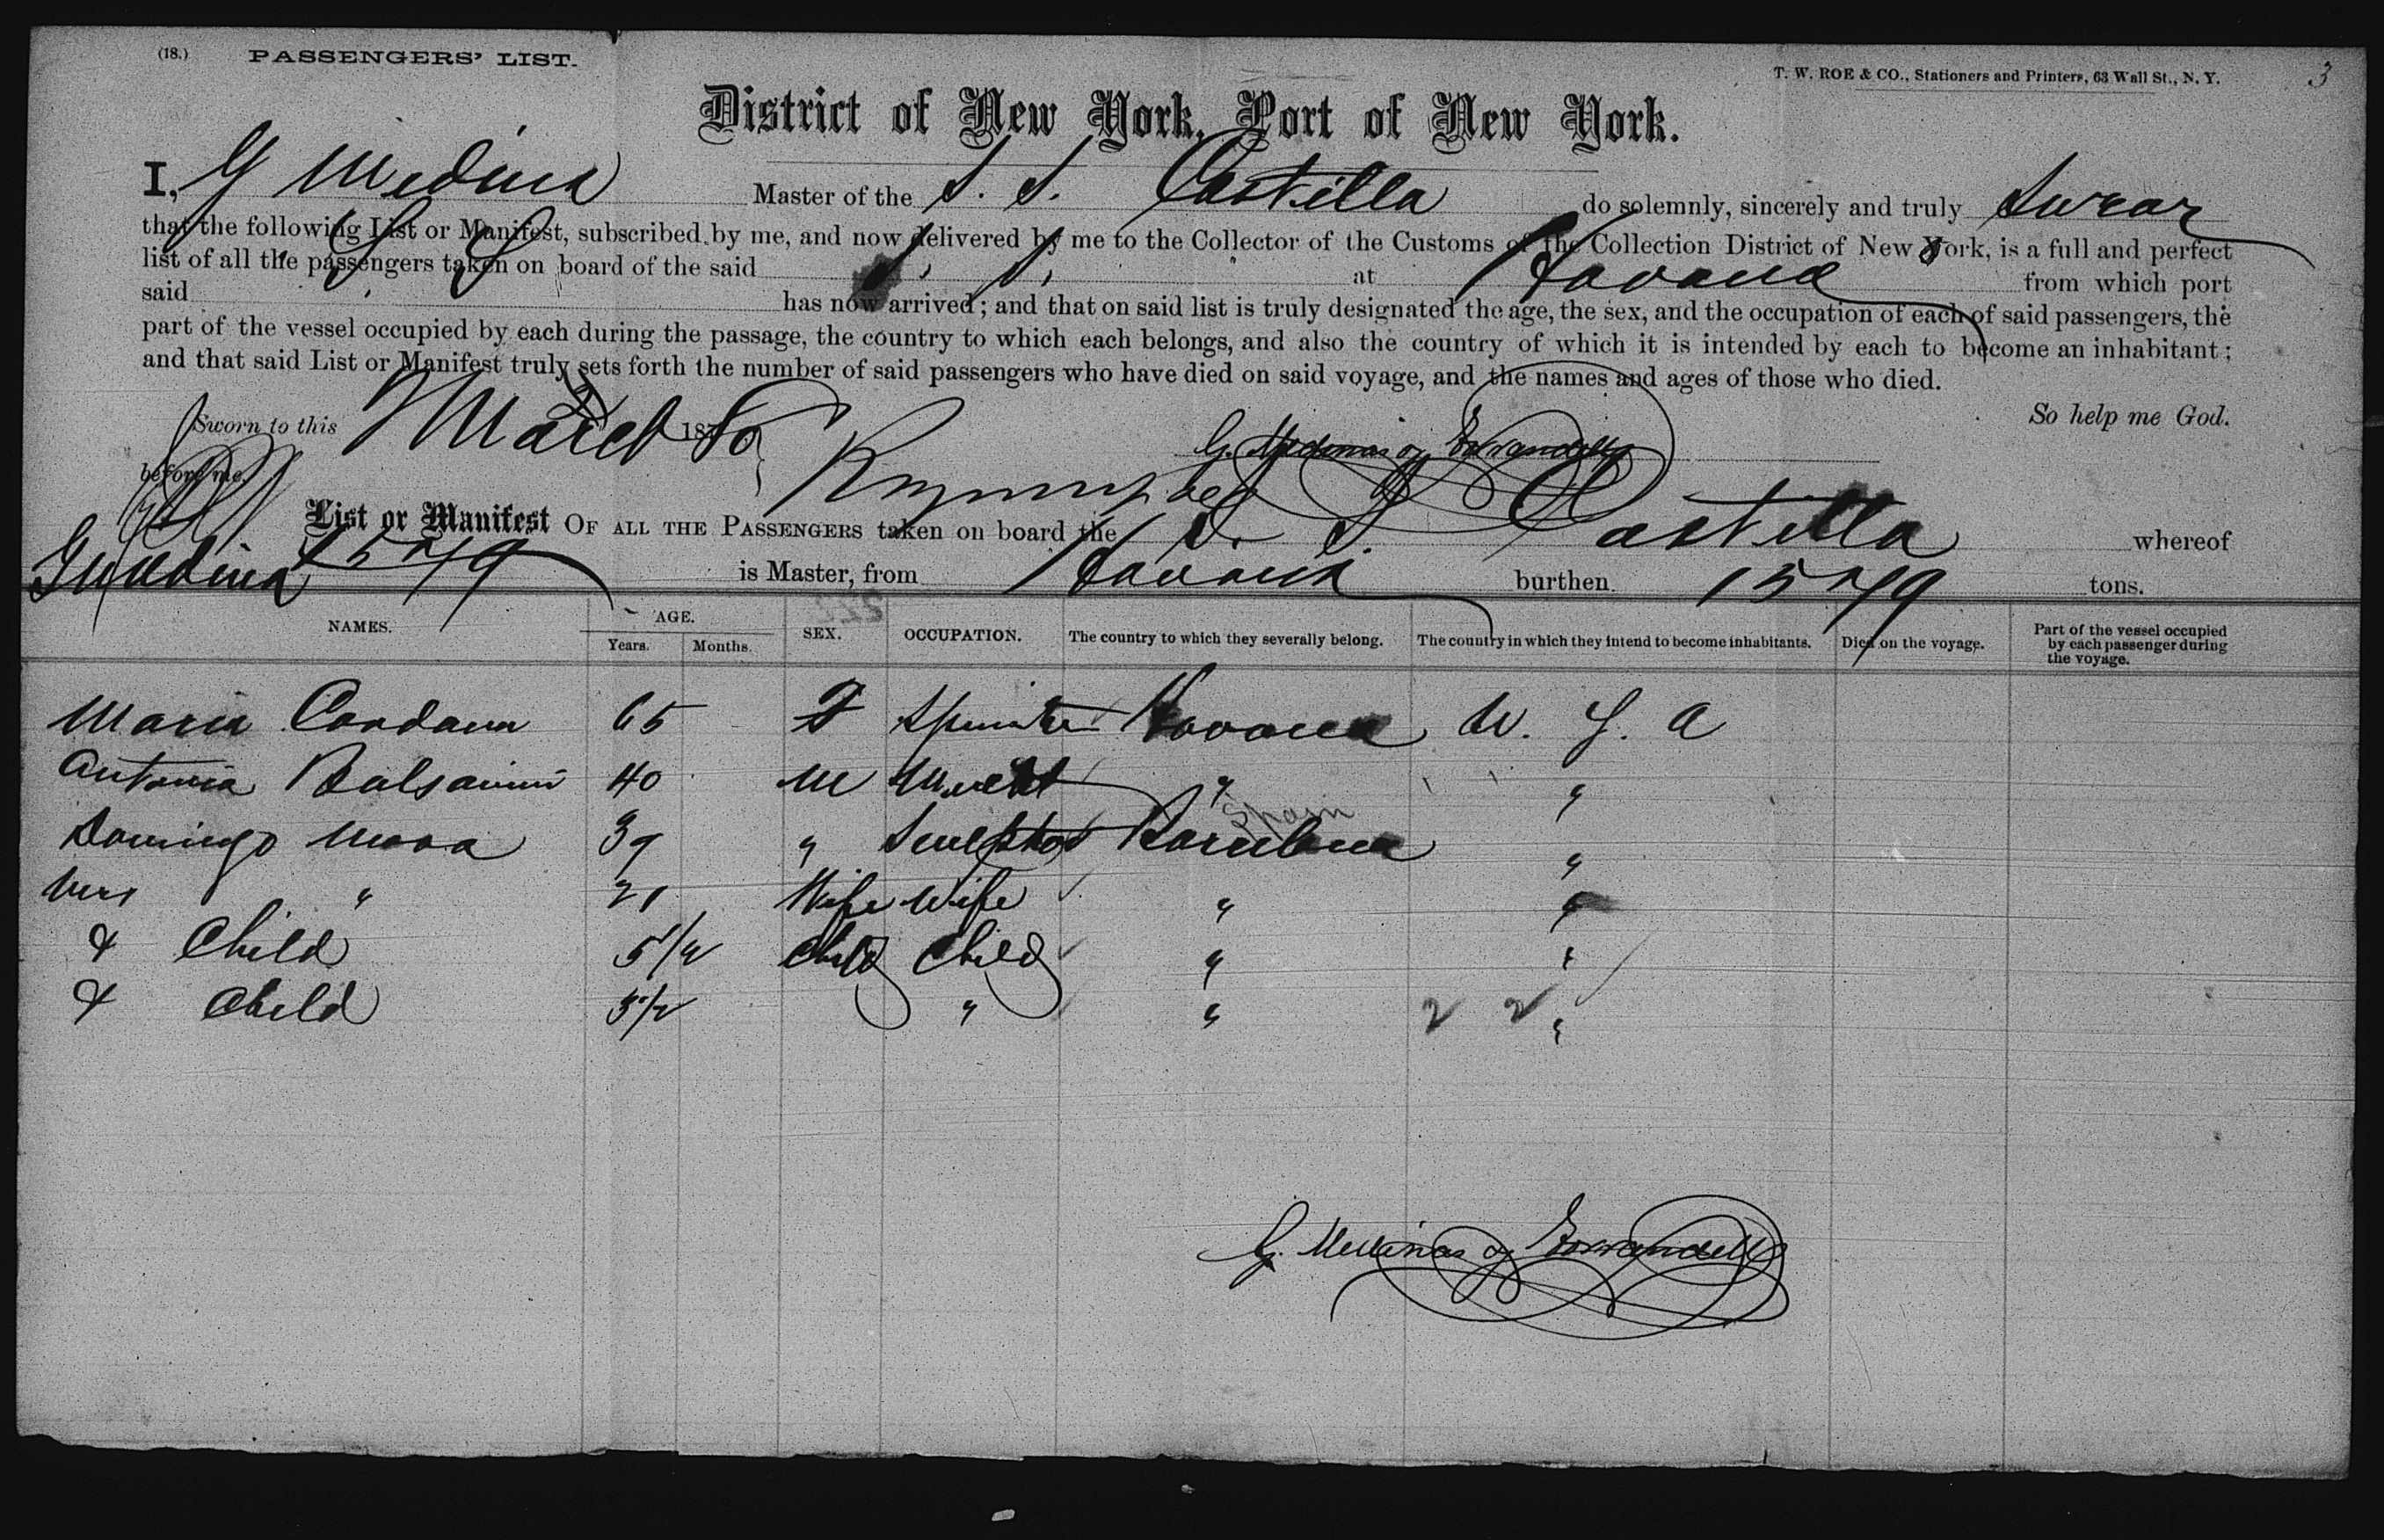 (18.) PASSENGERS' LIST. T. W. ROE & CO., Stationers and Printers, 63 Wall St., N. Y. 3
District of New York, Port of New York.
I, G Medina Master of the S. S. Castilla do solemnly, sincerely and truly Swear
that the following List or Manifest, subscribed by me, and now delivered by me to the Collector of the Customs of the Collection District of New York, is a full and perfect
list of all the passengers taken on board of the said S. S. at Havana from which port
said S S has now arrived; and that on said list is truly designated the age, the sex, and the occupation of each of said passengers, the
part of the vessel occupied by each during the passage, the country to which each belongs, and also the country of which it is intended by each to become an inhabitant;
and that said List or Manifest truly sets forth the number of said passengers who have died on said voyage, and the names and ages of those who died.
So help me God.
Sworn to this March 1880
before me,
List or Manifest OF ALL THE PASSENGERS taken on board the S. S. Castilla whereof
G Medina 1579 is Master, from Havana burthen 1579 tons.
NAMES. AGE. Years. Months. SEX. OCCUPATION. The country to which they severally belong. The country in which they intend to become inhabitants. Died on the voyage. Part of the vessel occupied by each passenger during the voyage.
Maria Cardava 65 F Spinster Havana U. S. A
Antonia 40 M Mercht " "
Spain
Domingo Mora 39 " Sculptor Barcelona "
Mrs " 21 Wife Wife " "
& Child 5 1/2 Child Child " "
& Child 3 1/2 " " 2 2 "